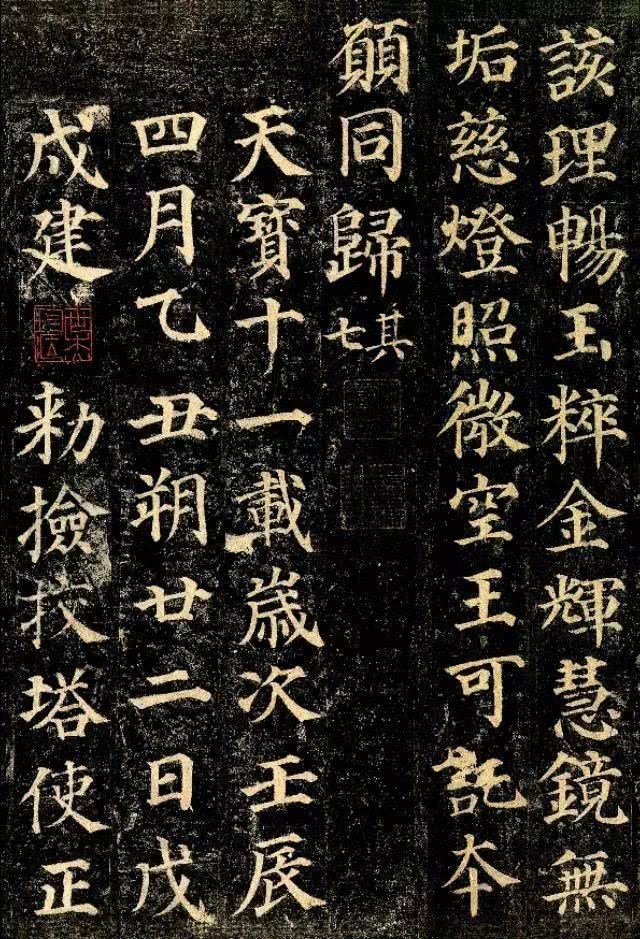 該理暢玉粹金輝慧鏡無
垢慈燈照微空王可託夲
願同歸其七
天寶十一載歲次壬辰
四月乙丑朔廿二日戊
戌建勑撿挍塔使正